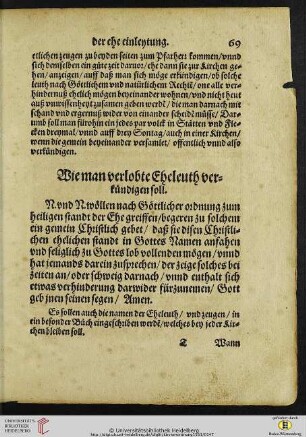 der ehe einleytung. 69
etlichen zeugen zu beyden seiten zum Pfarher: kommen/ vnnd
sich demselben ein gůte zeit daruor/ ehe dann sie zur Kirchen ge-
hen/ anzeigen/ auff daß man sich möge erkündigen/ ob solche
leuth nach Göttlichem vnd natürlichem Rechte/ one alle ver-
hindernuß ehelich mögen beyeinander wohnen/ vnd nicht heut
auß vnwissenheyt zusamen geben werde/ die man darnach mit
schand vnd ergernuß wider von einander scheide müsse/ Dar-
umb soll man fürohin ein jedes par volck in Stätten vnd Fle-
cken dreymal/ vnnd auff drey Sontag/ auch in einer Kirchen/
wenn die gemein beyeinander versamlet/ offentlich vnnd also
verkündigen.
Wie man verlobte Eheleuth ver-
kündigen soll.
N. vnd N. wöllen nach Göttlicher ordnung zum
heiligen standt der Ehe greiffen/ begeren zu solchem
ein gemein Christlich gebet/ daß sie disen Christli-
chen ehelichen standt in Gottes Namen anfahen
vnd seliglich zu Gottes lob vollenden mögen/ vnnd
hat jemands darein zusprechen/ der zeige solches bei
zeiten an/ oder schweig darnach/ vnnd enthalt sich
etwas verhinderung darwider fürzunemen/ Gott
geb jnen seinen segen/ Amen.
Es sollen auch die namen der Eheleuth/ vnd zeugen/ in
ein besonder Bůch eingeschriben werdē/ welches bey jeder Kir-
chen bleiben soll.
S Wann
UNIVERSITÄTS-
BIBLIOTHEK
HEIDELBERG
© Universitätsbibliothek Heidelberg
gefördert durch
Baden-Württemberg